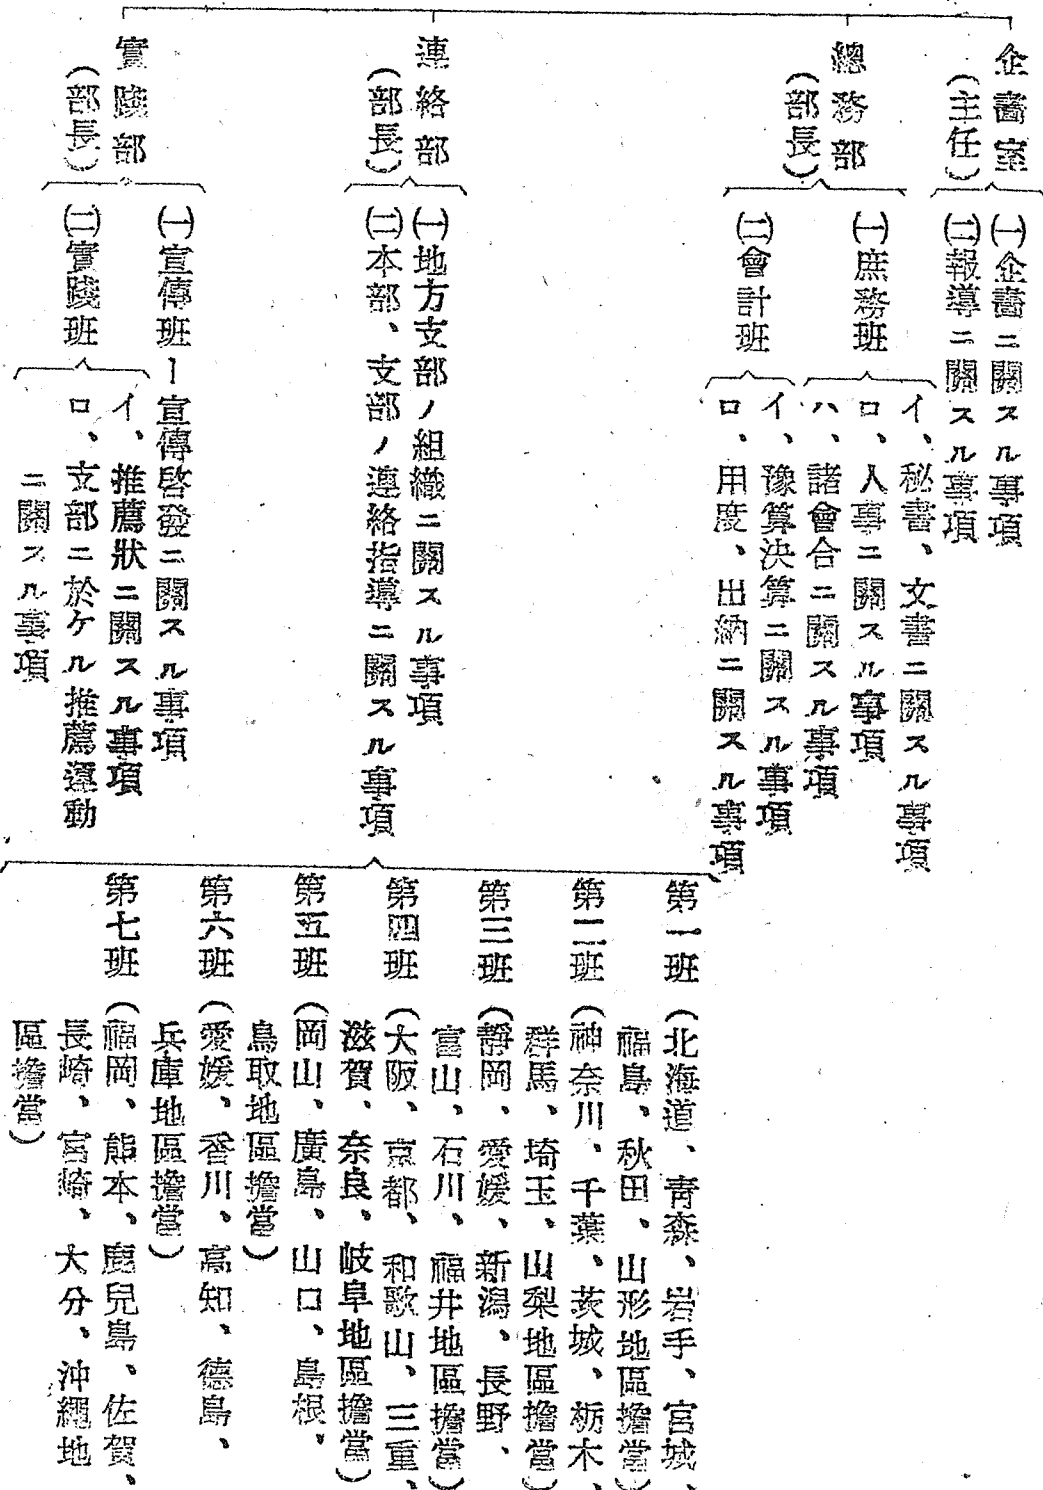 企畫室
(主任)
㈠企畫ニ關スル事項
㈡報導ニ關スル事項
總務部
(部長)
㈠庶務班
イ、秘書、文書ニ關スル事項
ロ、人事ニ關スル事項
ハ、諸會合ニ關スル事項
㈡會計班
イ、豫算決算ニ關スル事項
ロ、用度、出納ニ關スル事項
連絡部
(部長)
㈠地方支部ノ組織ニ關スル事項
㈡本部、支部ノ連絡指導ニ關スル事項
第一班(北海道、靑森、岩手、宮城、
福島、秋田、山形地區擔當)
第二班(神奈川、千葉、茨城、栃木、
群馬、埼玉、山梨地區擔當)
第三班(靜岡、愛媛、新潟、長野、
富山、石川、福井地區擔當)
第四班(大阪、京都、和歌山、三重、
滋賀、奈良、岐阜地區擔當)
第五班(岡山、廣島、山口、島根、
鳥取地區擔當)
第六班(愛媛、香川、高知、德島、
兵庫地區擔當)
第七班(福岡、熊本、鹿兒島、佐賀、
長崎、宮崎、大分、沖繩地
區擔當)
實踐部
(部長)
㈠宣傳班ー宣傳啓發ニ關スル事項
㈡實踐班
イ、推薦狀ニ關スル事項
ロ、支部ニ於ケル推薦運動
ニ關スル事項